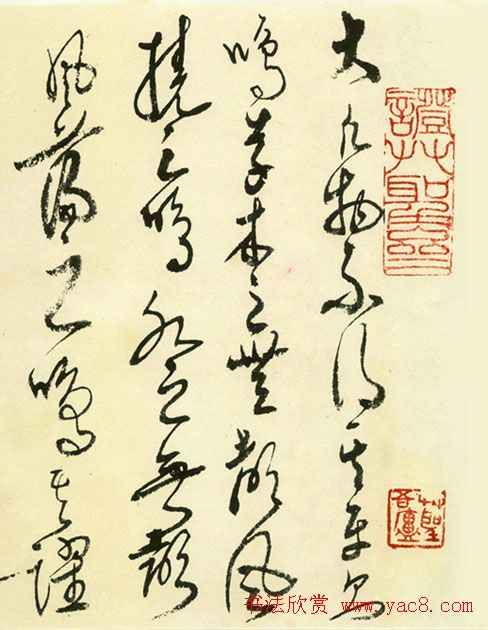 大凡物不得其平則
鳴草木之無聲風
撓之鳴水之無聲
風蕩之鳴其躍
书法欣赏 www.yac8.com